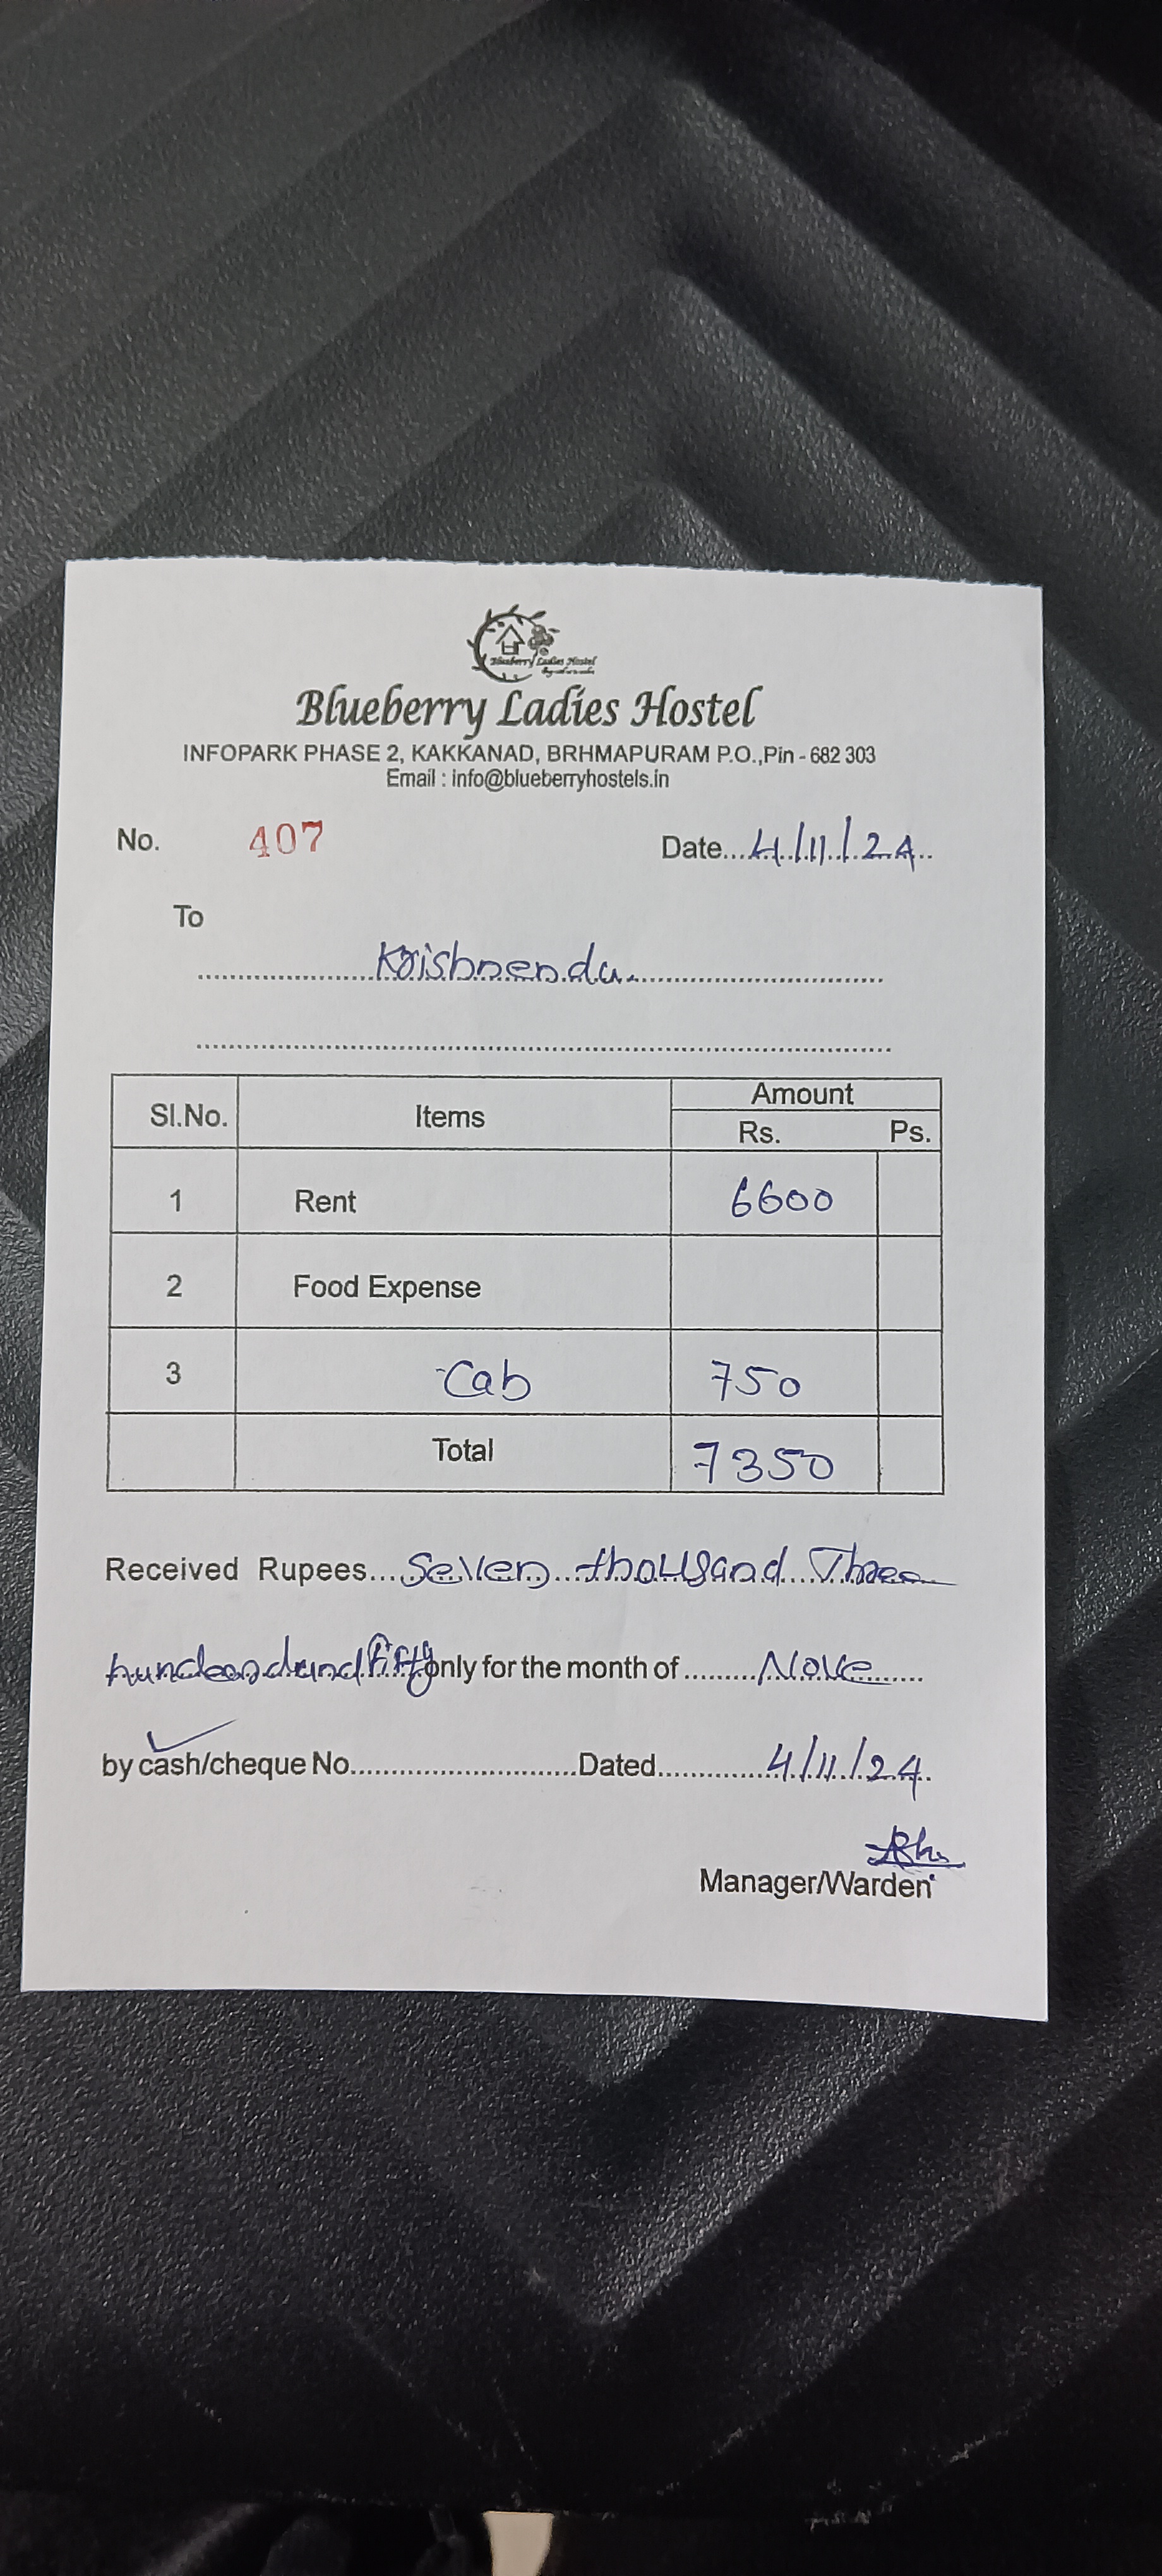 Blueberry Ladies Hostel
Blueberry Ladies Hostel
INFOPARK PHASE 2, KAKKANAD, BRHMAPURAM P.O.,Pin - 682 303
Email : info@blueberryhostels.in
No. 407 Date...4/11/24..
To
Krishnendu
Sl.No. Items Amount
Rs. Ps.
1 Rent 6600
2 Food Expense
3 Cab 750
Total 7350
Received Rupees...Seven thousand Three
hundred and fifty only for the month of.........Nove......
by cash/cheque No............................Dated.............4/11/24.
Manager/Warden